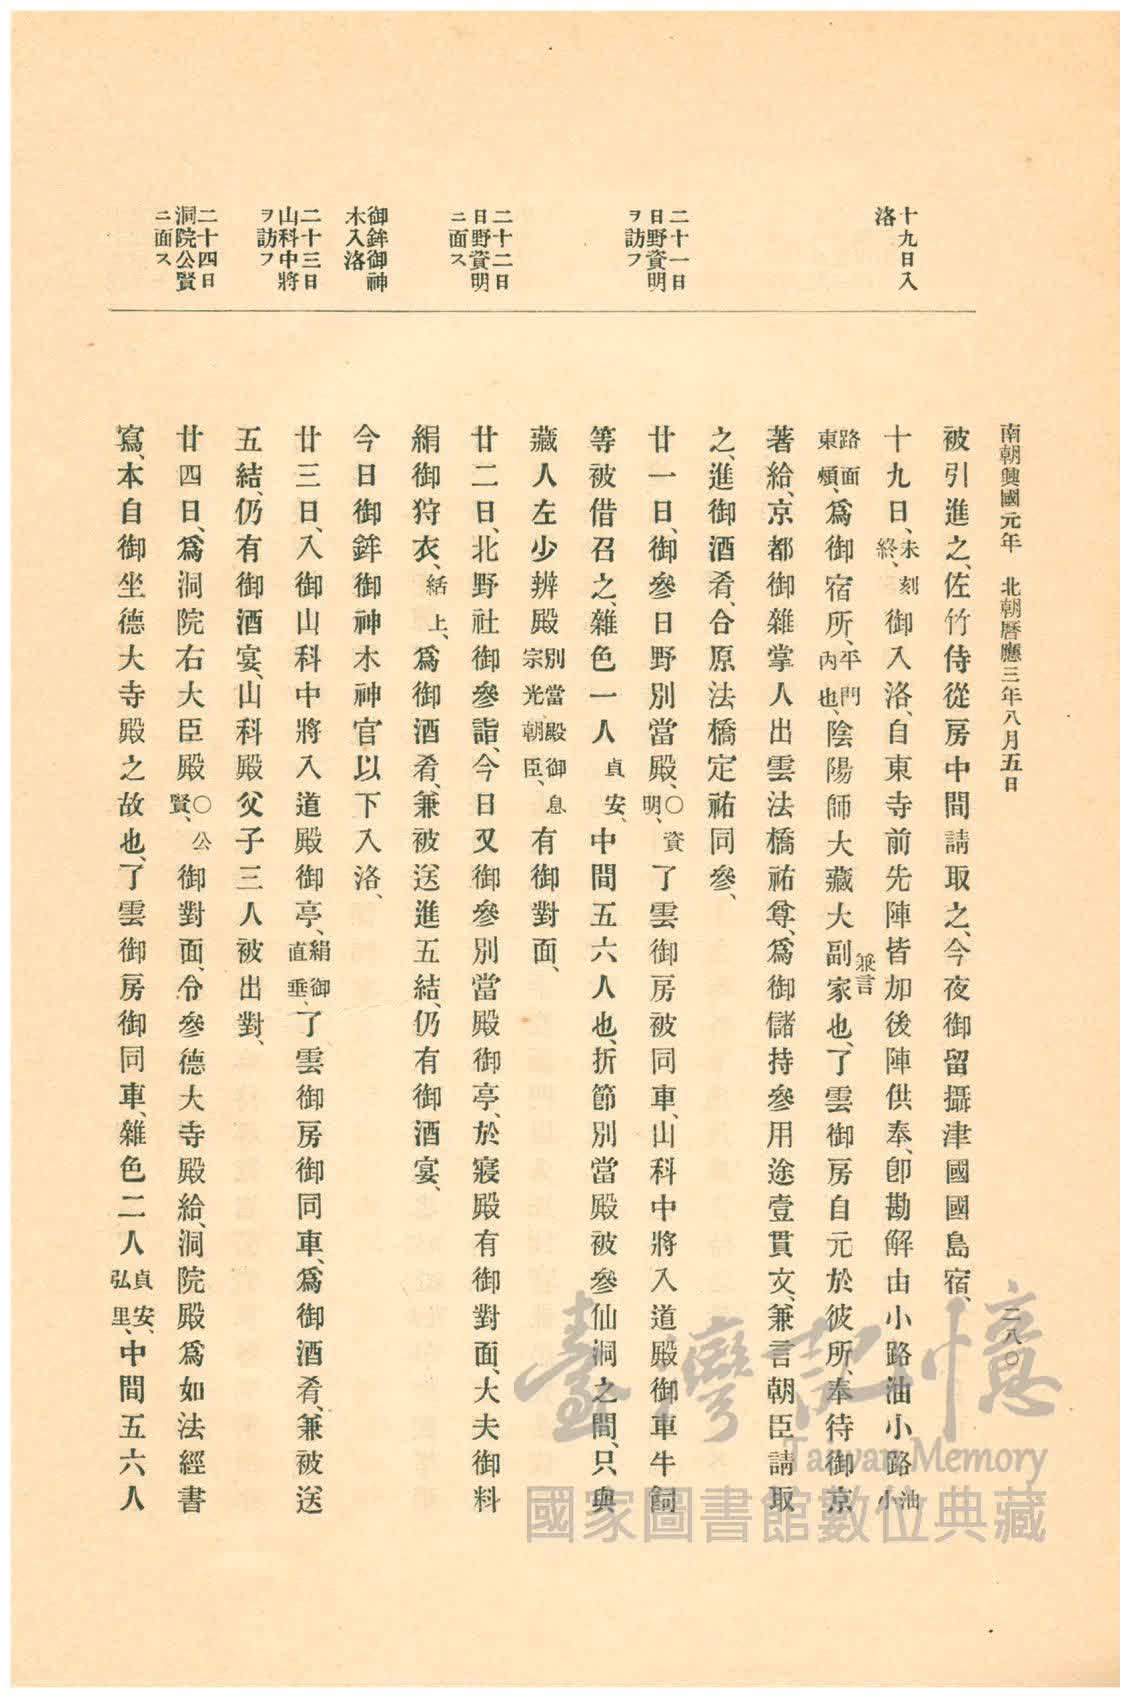 南朝興國元年　北朝曆應三年八月五日
二八〇
十九日入
洛
二十一日
日野資明
ヲ訪フ
二十二日
日野資明
ニ面ス
御鉾御神
木入洛
二十三日
山科中將
ヲ訪フ
二十四日
洞院公賢
ニ面ス
被引進之、佐竹侍從房中間請取之、今夜御留攝津國國島宿、
十九日、未刻終、御入洛、自東寺前先陣皆加後陣供奉、卽勘解由小路油小路油小
路面東頰、爲御宿所、平門內也、陰陽師大藏大副兼言家也、了雲御房自元於彼所、奉待御京
著給、京都御雜掌人出雲法橋祐尊、爲御儲持參用途壹貫文、兼言朝臣請取
之、進御酒肴、合原法橋定祐同參、
廿一日、御參日野別當殿、〇資明、了雲御房被同車、山科中將入道殿御車牛飼
等被借召之、雜色一人貞安、中間五六人也、折節別當殿被參仙洞之間、只與
藏人左少辨殿別當殿御息宗光朝臣、有御對面、
廿二日、北野社御參詣、今日又御參別當殿御亭、於寢殿有御對面、大夫御料
絹御狩衣、結上、爲御酒肴、兼被送進五結、仍有御酒宴、
今日御鉾御神木神官以下入洛、
廿三日、入御山科中將入道殿御亭、絹御直垂、了雲御房御同車、爲御酒肴、兼被送
五結、仍有御酒宴、山科殿父子三人被出對、
廿四日、爲洞院右大臣殿〇公賢、御對面、令參德大寺殿給、洞院殿爲如法經書
寫、本自御坐德大寺殿之故也、了雲御房御同車、雜色二人貞安、弘里、中間五六人
臺灣記憶
Taiwan Memory
國家圖書館數位典藏